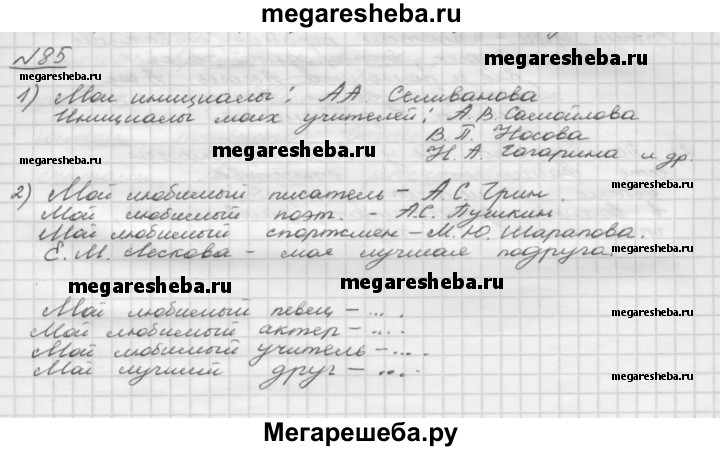 megaresheba.ru
№85
megaresheba.ru
megaresheba.ru
1) Мои инициалы: АА Селиванова
Инициалы моих учителей: А.В. Самойлова
В.П. Носова
megaresheba.ru
Н.А. Гагарина и др.
2) Мой любимый писатель – А.С. Грин.
megaresheba.ru
Мой любимый поэт. – А.С. Пушкин
Мой любимый спортсмен – М.Ю. Шарапова.
Е.М. Лескова – моя лучшая подруга.
megaresheba.ru
megaresheba.ru
Мой любимый певец – ... .
Мой любимый актер – ... .
megaresheba.ru
Мой любимый учитель – ... .
Мой лучший друг – ... .
megaresheba.ru
Мегарешеба.ру